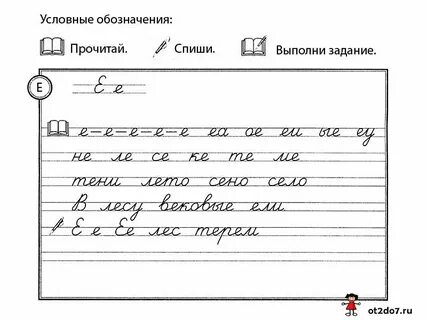 Условные обозначения:
Прочитай. Спиши. Выполни задание.
Е
Е е
е–е–е–е–е еа ое еи ые еу
не ле се ке те ме
тени лето сено село
В лесу вековые ели.
Е е Ее лес терем
ot2do7.ru